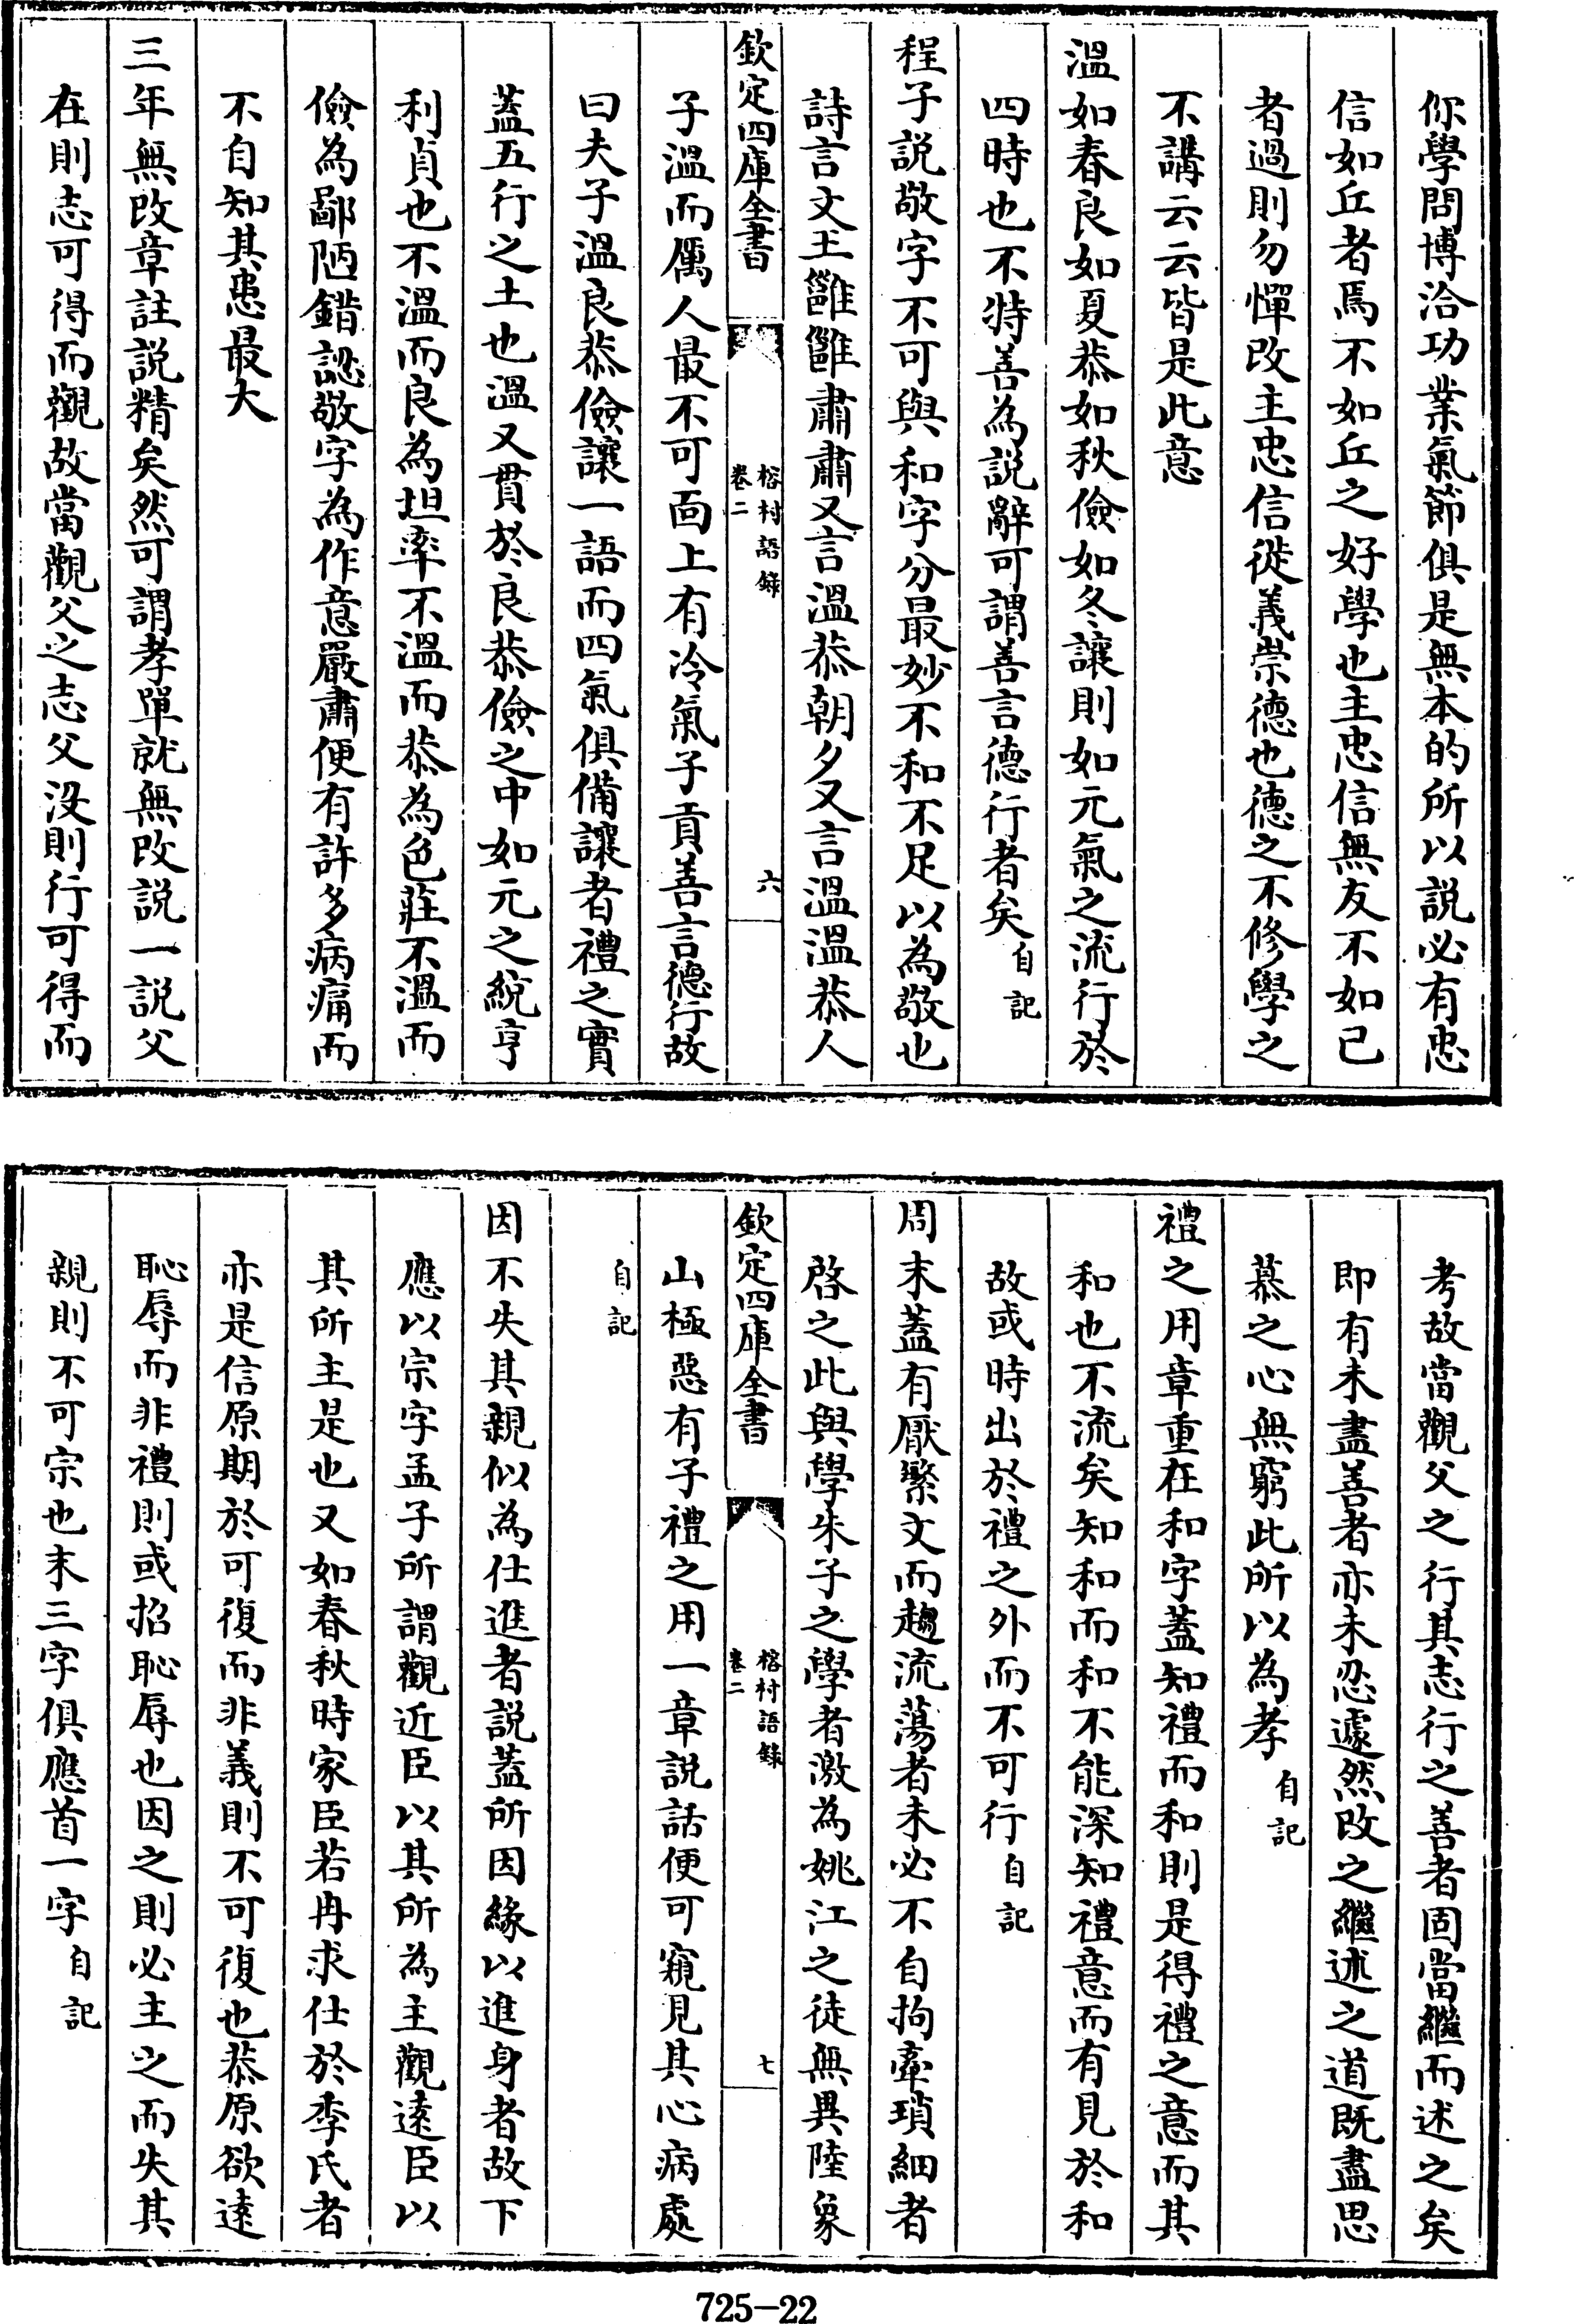 你學問博洽功業氣節俱是無本的所以説必有忠
信如丘者焉不如丘之好學也主忠信無友不如己
者過則勿憚改主忠信徙義崇德也德之不修學之
不講云云皆是此意
溫如春良如夏恭如秋儉如冬讓則如元氣之流行於
四時也不特善為説辭可謂善言德行者矣自記
程子説敬字不可與和字分最妙不和不足以為敬也
詩言文王雝雝肅肅又言溫恭朝夕又言溫溫恭人
欽定四庫全書 榕村語錄 卷二 六
子溫而厲人最不可面上有冷氣子貢善言德行故
曰夫子溫良恭儉讓一語而四氣俱備讓者禮之實
蓋五行之土也溫又貫於良恭儉之中如元之統亨
利貞也不溫而良為坦率不溫而恭為色莊不溫而
儉為鄙陋錯認敬字為作意嚴肅便有許多病痛而
不自知其患最大
三年無改章註説精矣然可謂孝單就無改説一説父
在則志可得而觀故當觀父之志父没則行可得而
考故當觀父之行其志行之善者固當繼而述之矣
即有未盡善者亦未忍遽然改之繼述之道既盡思
慕之心無窮此所以為孝自記
禮之用章重在和字蓋知禮而和則是得禮之意而其
和也不流矣知和而和不能深知禮意而有見於和
故或時出於禮之外而不可行自記
周末蓋有厭繁文而趨流蕩者未必不自拘牽瑣細者
啓之此與學朱子之學者激為姚江之徒無異陸象
欽定四庫全書 榕村語錄 卷二 七
山極惡有子禮之用一章説話便可窺見其心病處
自記
因不失其親似為仕進者説蓋所因緣以進身者故下
應以宗字孟子所謂觀近臣以其所為主觀遠臣以
其所主是也又如春秋時家臣若冉求仕於季氏者
亦是信原期於可復而非義則不可復也恭原欲遠
恥辱而非禮則或招恥辱也因之則必主之而失其
親則不可宗也末三字俱應首一字自記
725-22